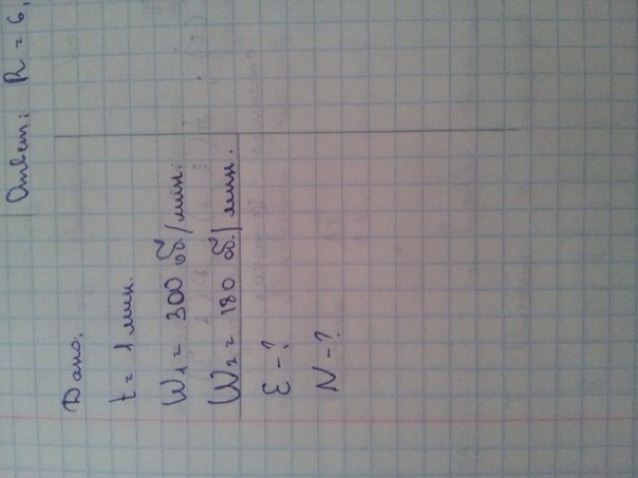 Ответ: R = 6,
Дано:
t = 1 мин.
W₁ = 300 об./мин.
W₂ = 180 об./мин.
ε - ?
N - ?